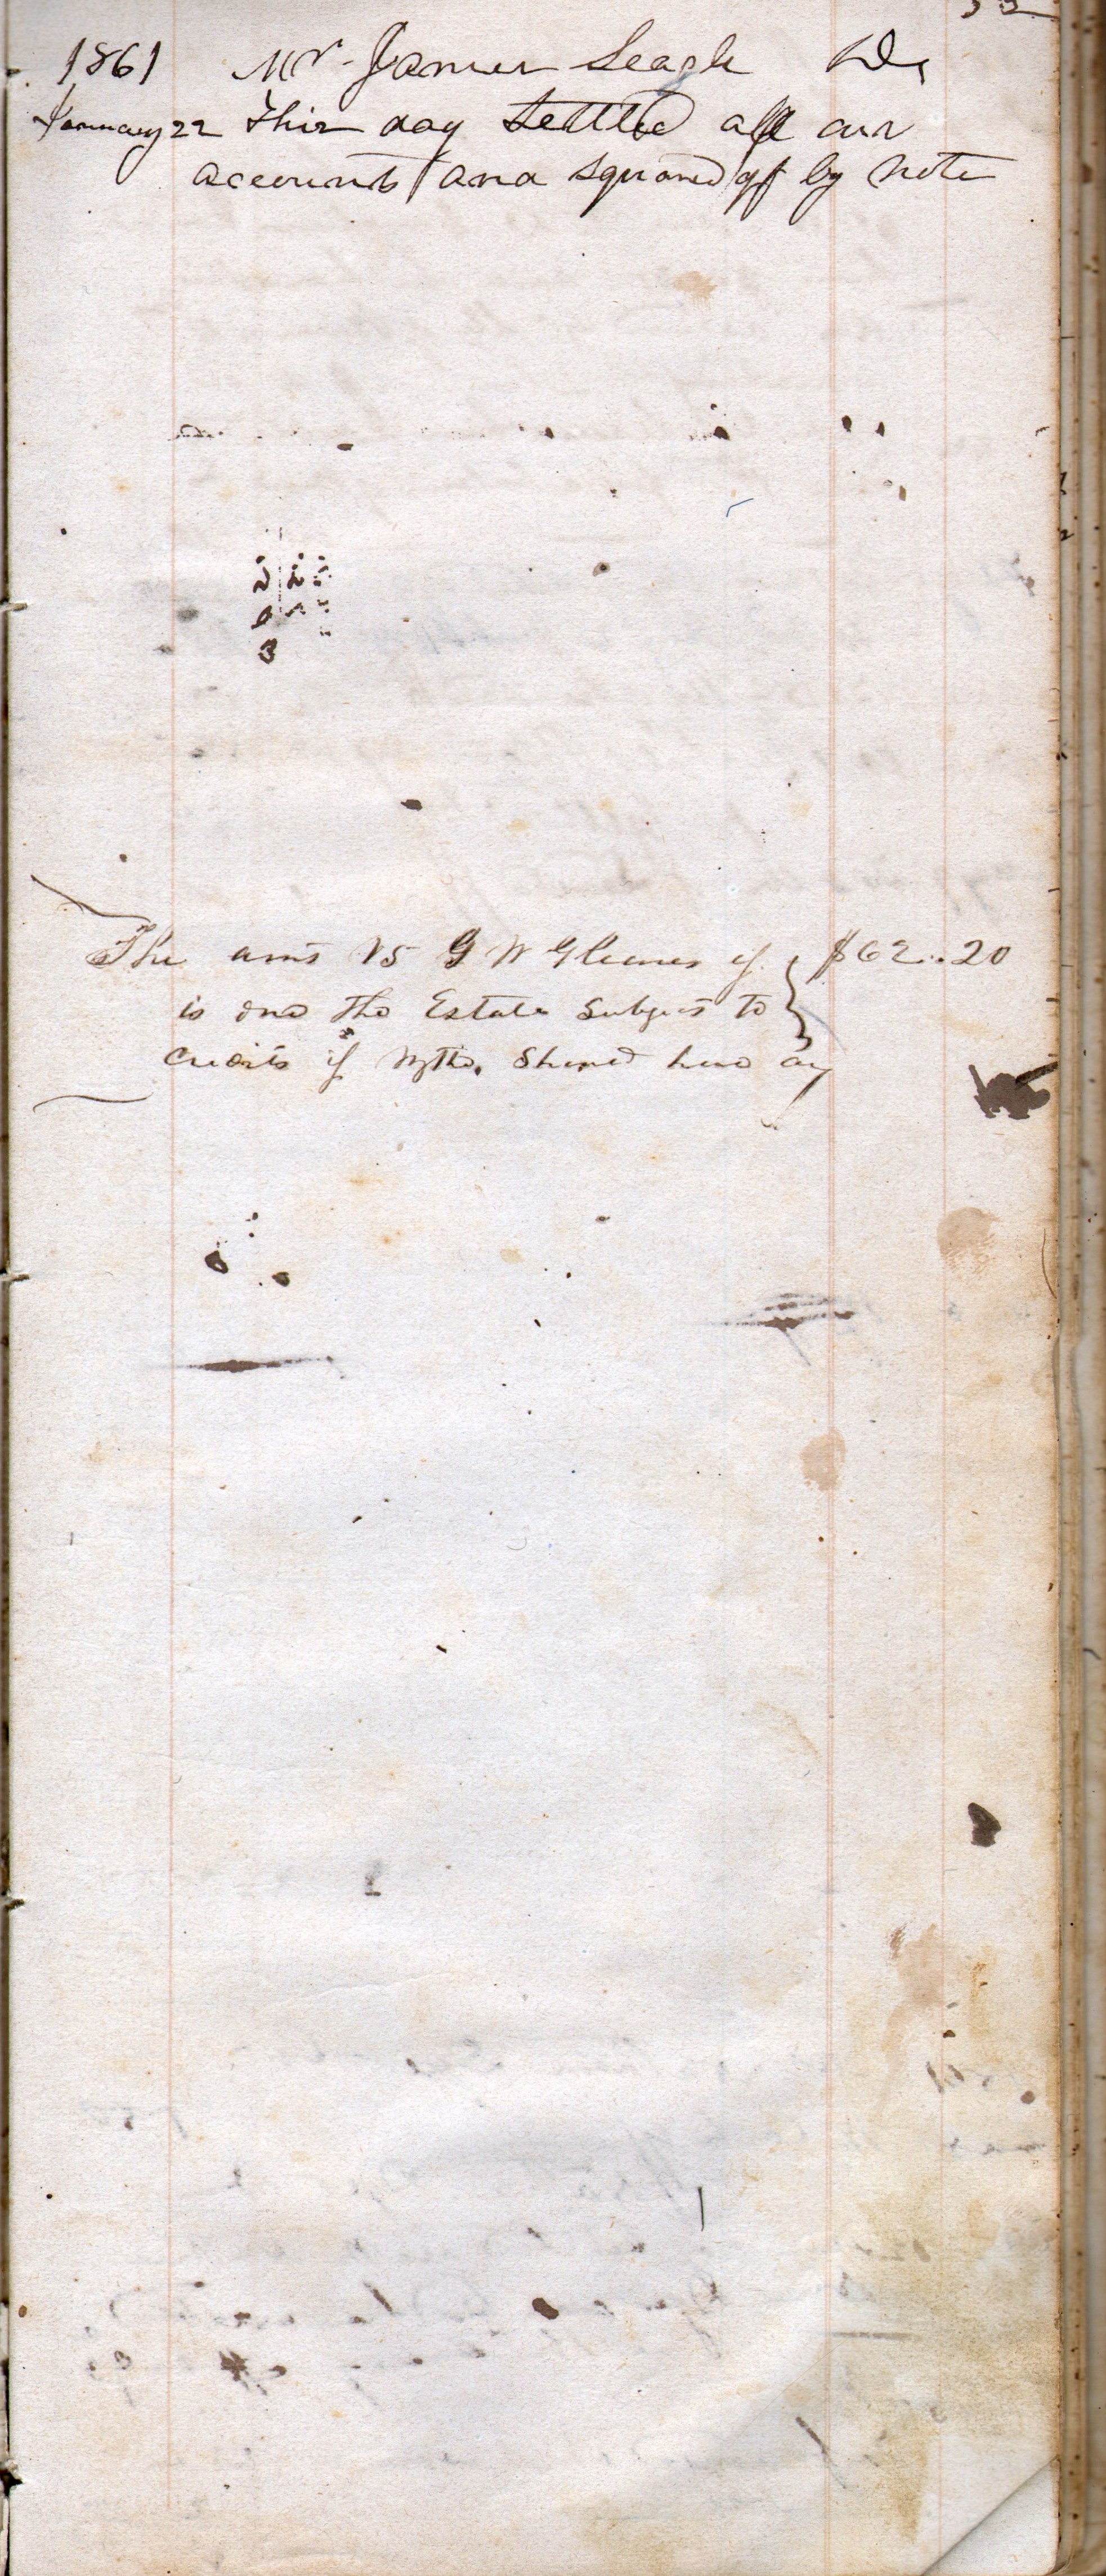 1861 Mr James Seagle Dr
January 22 This day Settled all our
accounts and squared of by note
The amt vs G W $62..20
is due the Estate Subject to
Credits if Mthr. Shored have any